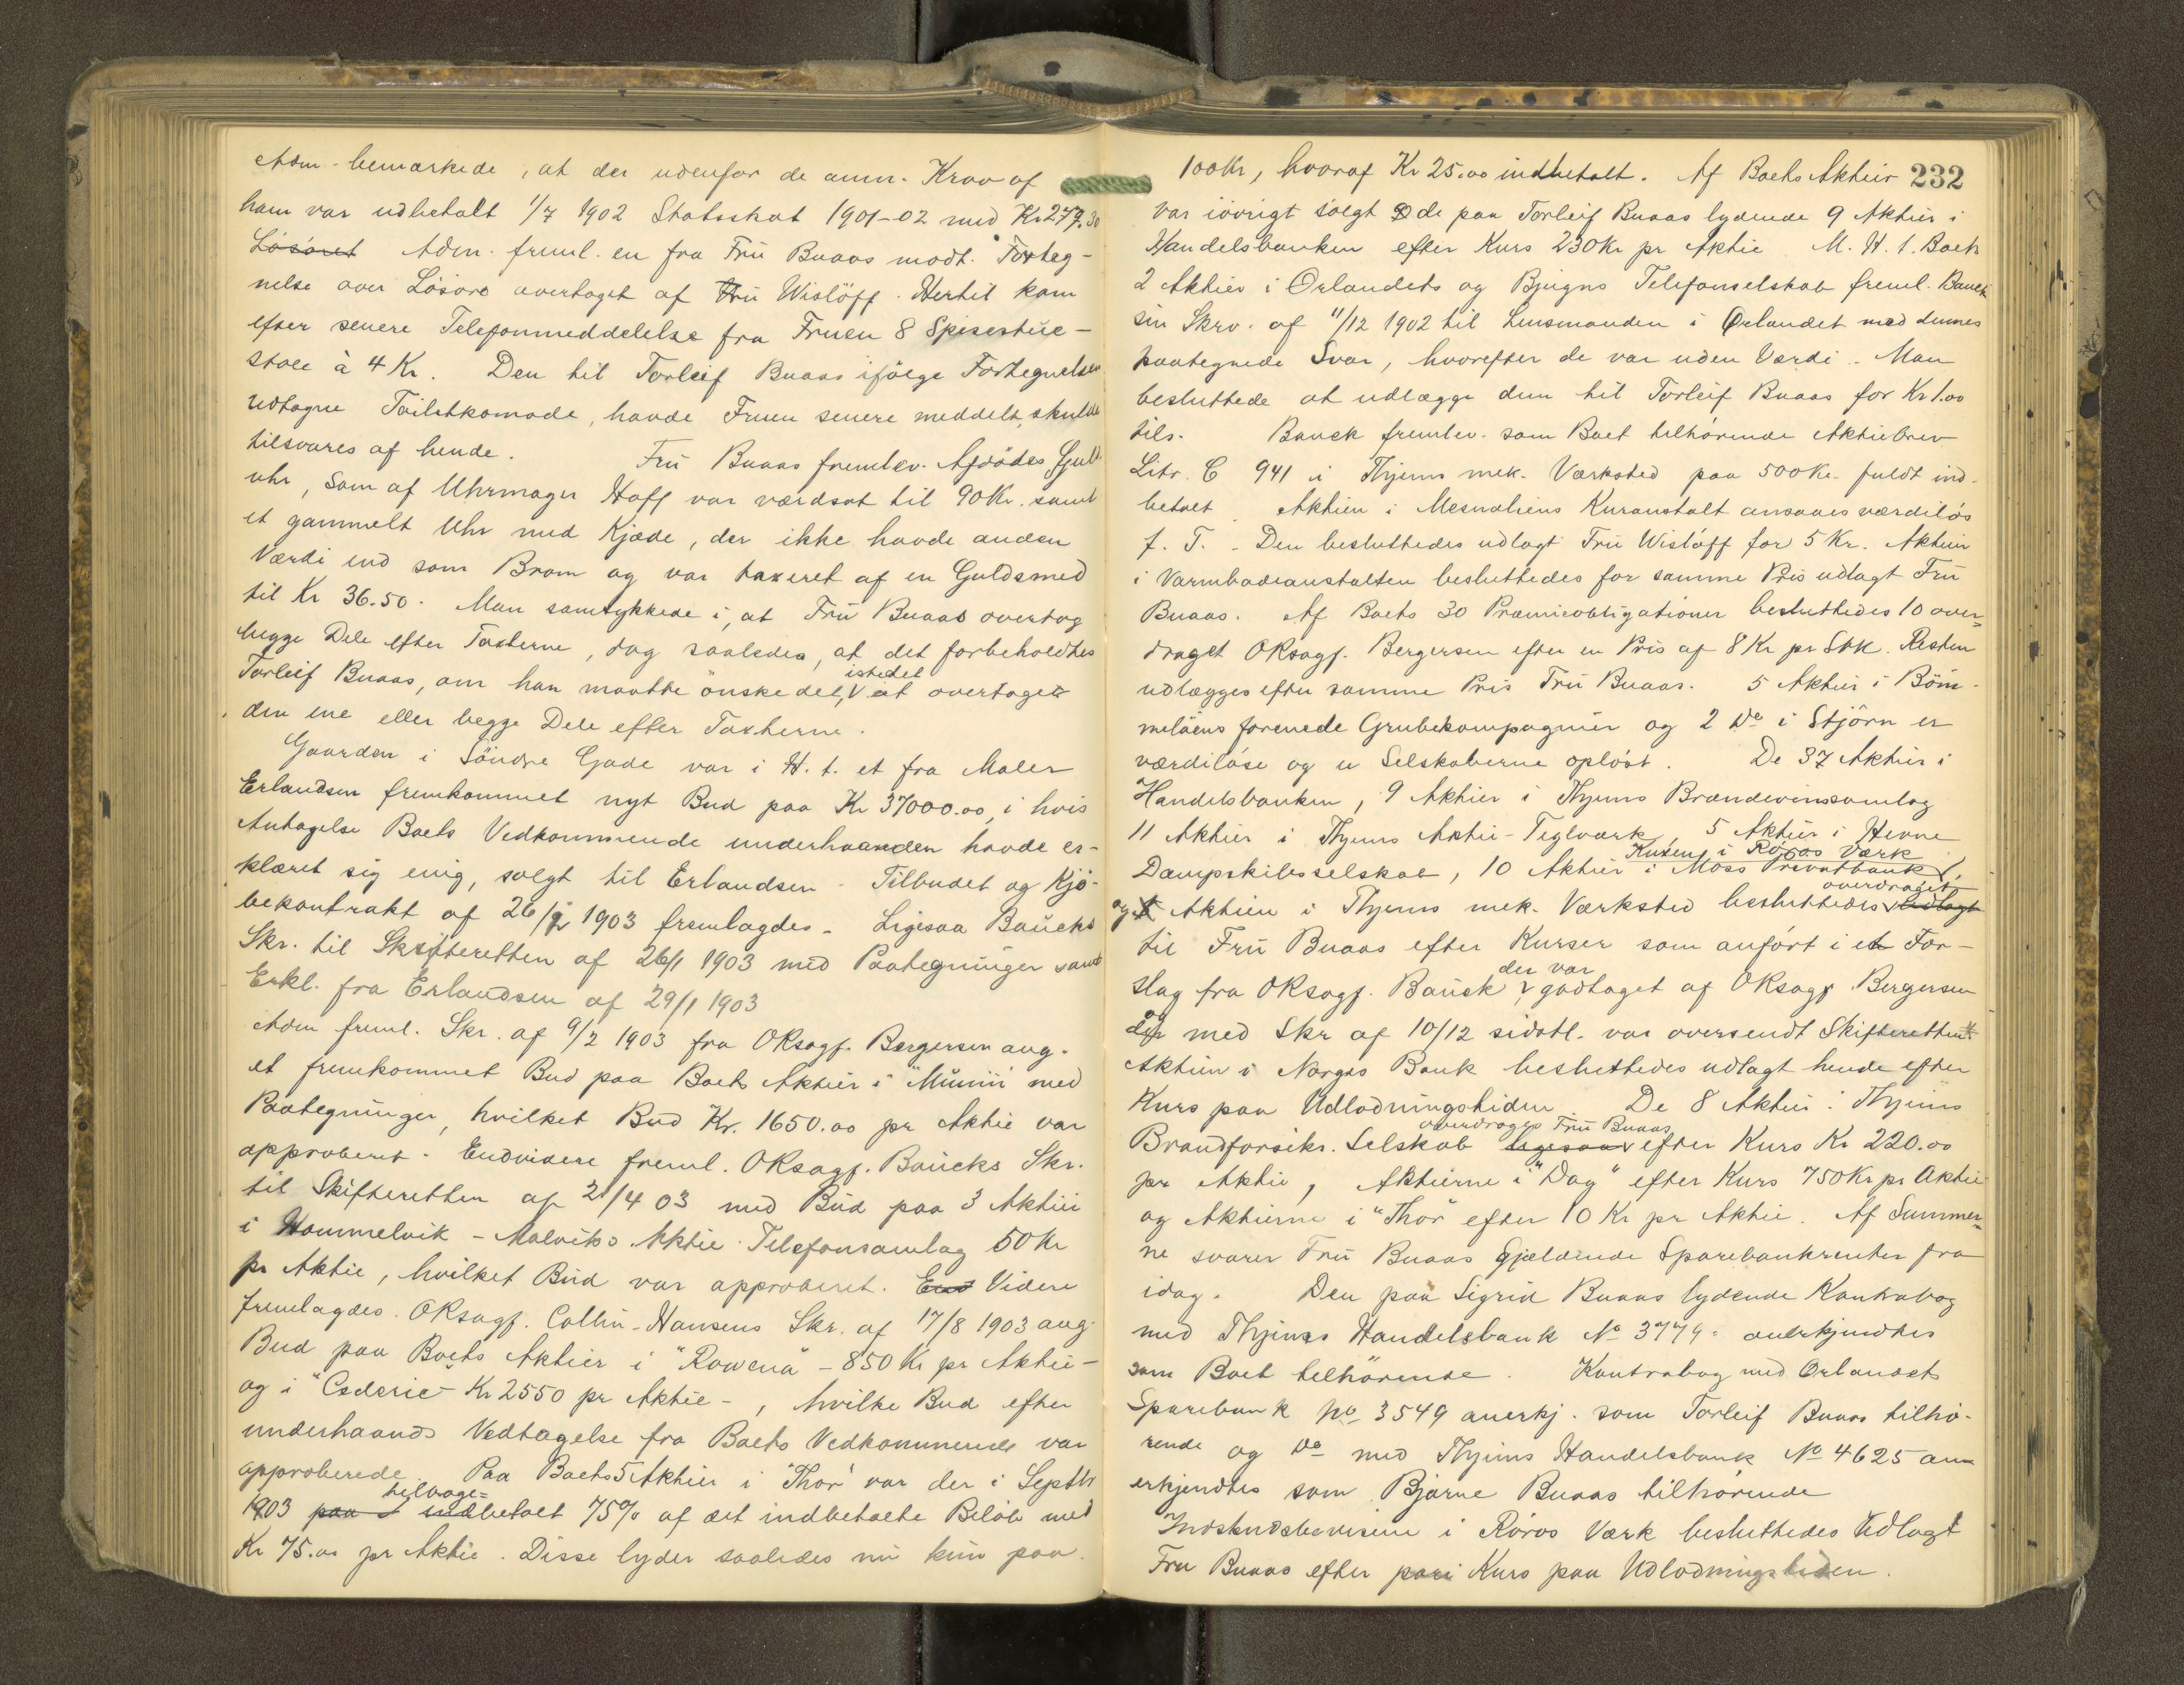 Adm. bemærkede, at der udenfor de anm. Krav af
ham var udbetalt 1/7 1902 Statsskat 1901-02 med Kr 277.30
Løsöret Adm. freml. en fra Fru Buaas modt. Forteg-
nelse over Lösöre overtaget af Fru Wislöff. Hertil kom
efter senere Telefonmeddelelse fra Fruen 8 Spisestue-
stole à 4 Kr. Den til Torleif Buaas ifölge Fortegnelsen
udtagne Toiletkomode, havde Fruen senere meddelt, skulde
tilsvares af hende. Fru Buaas fremlev. Afdödes Guld
uhr, som af Uhrmager Hoff var værdsat til 90 Kr. samt
et gammelt Uhr med Kjæde, der ikke havde anden
Værdi end som Bram og var taxeret af en Guldsmed
til Kr 36.50. Man samtykkede i, at Fru Buaas overtog
begge Dele efter Taxterne, dog saaledes, at det forbeholdtes
Torleif Buaas, om han maatte önske det, istedet at overtage
den ene eller begge Dele efter Taxterne.
Gaarden i Söndre Gade var i H. t. et fra Maler
Erlandsen fremkommet nyt Bud paa Kr 37000.00, i hvis
Antagelse Boets Vedkommende underhaanden havde er-
klæret sig enig, solgt til Erlandsen. Tilbudet og Kjö-
bekontrakt af 26/2 1903 fremlagdes. Ligesaa Baucks
Skr. til Skifteretten af 26/1 1903 med Paategninger samt
Erkl. fra Erlandsen af 29/1 1903
Adm freml. Skr. af 9/2 1903 fra OKsagf. Bergersen ang.
et fremkommet Bud paa Boets Aktier i "Munin" med
Paategninger, hvilket Bud Kr. 1650.00 pr Aktie var
approberet. Endvidere freml. OKsagf. Baucks Skr.
til Skifteretten af 21/4 03 med Bud paa 3 Aktier
i Hommelvik - Malviks Aktie Telefonsamlag 50 Kr
pr Aktie, hvilket Bud var approberet. End Videre
fremlagdes. OKsagf. Collin-Hansens Skr. af 17/8 1903 ang.
Bud paa Boets Aktier i "Rowena" - 850 Kr pr Aktie -
og i "Cederic - Kr 2550 pr Aktie -, hvilke Bud efter
underhaands Vedtagelse fra Boets Vedkommende var
approberede. Paa Boets 5 Aktier i "Thor" var der i Septbr
1903 paa tilbage= indbetalt 75% af det indbetalte Belöb med
Kr 75.00 pr Aktie. Disse lyder saaledes nu kun paa
232
100 Kr, hvoraf Kr 25.00 indbetalt. Af Boets Aktier
var iövrigt solgt de paa Torleif Buaas lydende 9 Aktier i
Handelsbanken efter Kurs 230 Kr pr Aktie M. H. t. Boets
2 Aktier i Ørlandets og Bjugns Telefonselskab freml. Bauck
sin Skrv. af 11/12 1902 til Lensmanden i Ørlandet med dennes
paategnede Svar, hvorefter de var uden Værdi. Man
besluttede at udlægge dem til Torleif Buaas for Kr 1.00
tils. Bauck fremlev. som Boet tilhörende Aktiebrev
Litr. C 941 i Thjems mek. Værksted paa 500 Kr. fuldt ind-
betalt. Aktien i Mesnaliens Kuranstalt ansaaes værdilös
f. T. Den besluttedes udlagt Fru Wislöff for 5 Kr. Aktien
i Varmbadeanstalten besluttedes for samme Pris udlagt Fru
Buaas. Af Boets 30 Præmieobligationer besluttedes 10 over=
draget OKsagf. Bergersen efter en Pris af 8 Kr pr Stk. Resten
udlægges efter samme Pris Fru Buaas. 5 Aktier i Böm-
melöens forenede Grubekompagnier og 2 Do i Stjörn er
værdilöse og er Selskaberne oplöst. De 37 Aktier i
Handelsbanken, 9 Aktier i Thjems Brændevinssamlag
11 Aktier i Thjems Aktie-Teglværk, 5 Aktier i Hevne
Dampskibsselskab, 10 Aktier i Moss Privatbank, Kuxen i Röros Værk
og Aktien i Thjems mek. Værksted besluttedes overdraget udlagt
til Fru Buaas efter Kurser som anfört i et For-
slag fra OKsagf. Bauck der var godtaget af OKsagf. Bergersen
og med Skr af 10/12 sidstl. var oversendt Skifteretten.
Aktien i Norges Bank besluttedes udlagt hende efter
Kurs paa Udlodningstiden De 8 Aktier i Thjems
Brandforsikr. Selskab ligesaa overdrages Fru Buaas efter Kurs Kr 220.00
pr Aktie, Aktierne i "Dag" efter Kurs 750 Kr pr Aktie
og Aktierne i "Thor" efter 10 Kr pr Aktie. Af Summer=
ne svarer Fru Buaas gjældende Sparebankrenter fra
idag. Den paa Sigrid Buaas lydende Kontrabog
med Thjems Handelsbank No 3774 anerkjendtes
som Boet tilhörende. Kontrabog med Ørlandets
Sparebank No 3549 anerkj. som Torleif Buaas tilhö-
rende og Do med Thjems Handelsbank No 4625 an-
erkjendtes som Bjarne Buaas tilhörende
Indskudsbeviserne i Röros Værk besluttedes Udlagt
Fru Buaas efter pari Kurs paa Udlodningstiden.